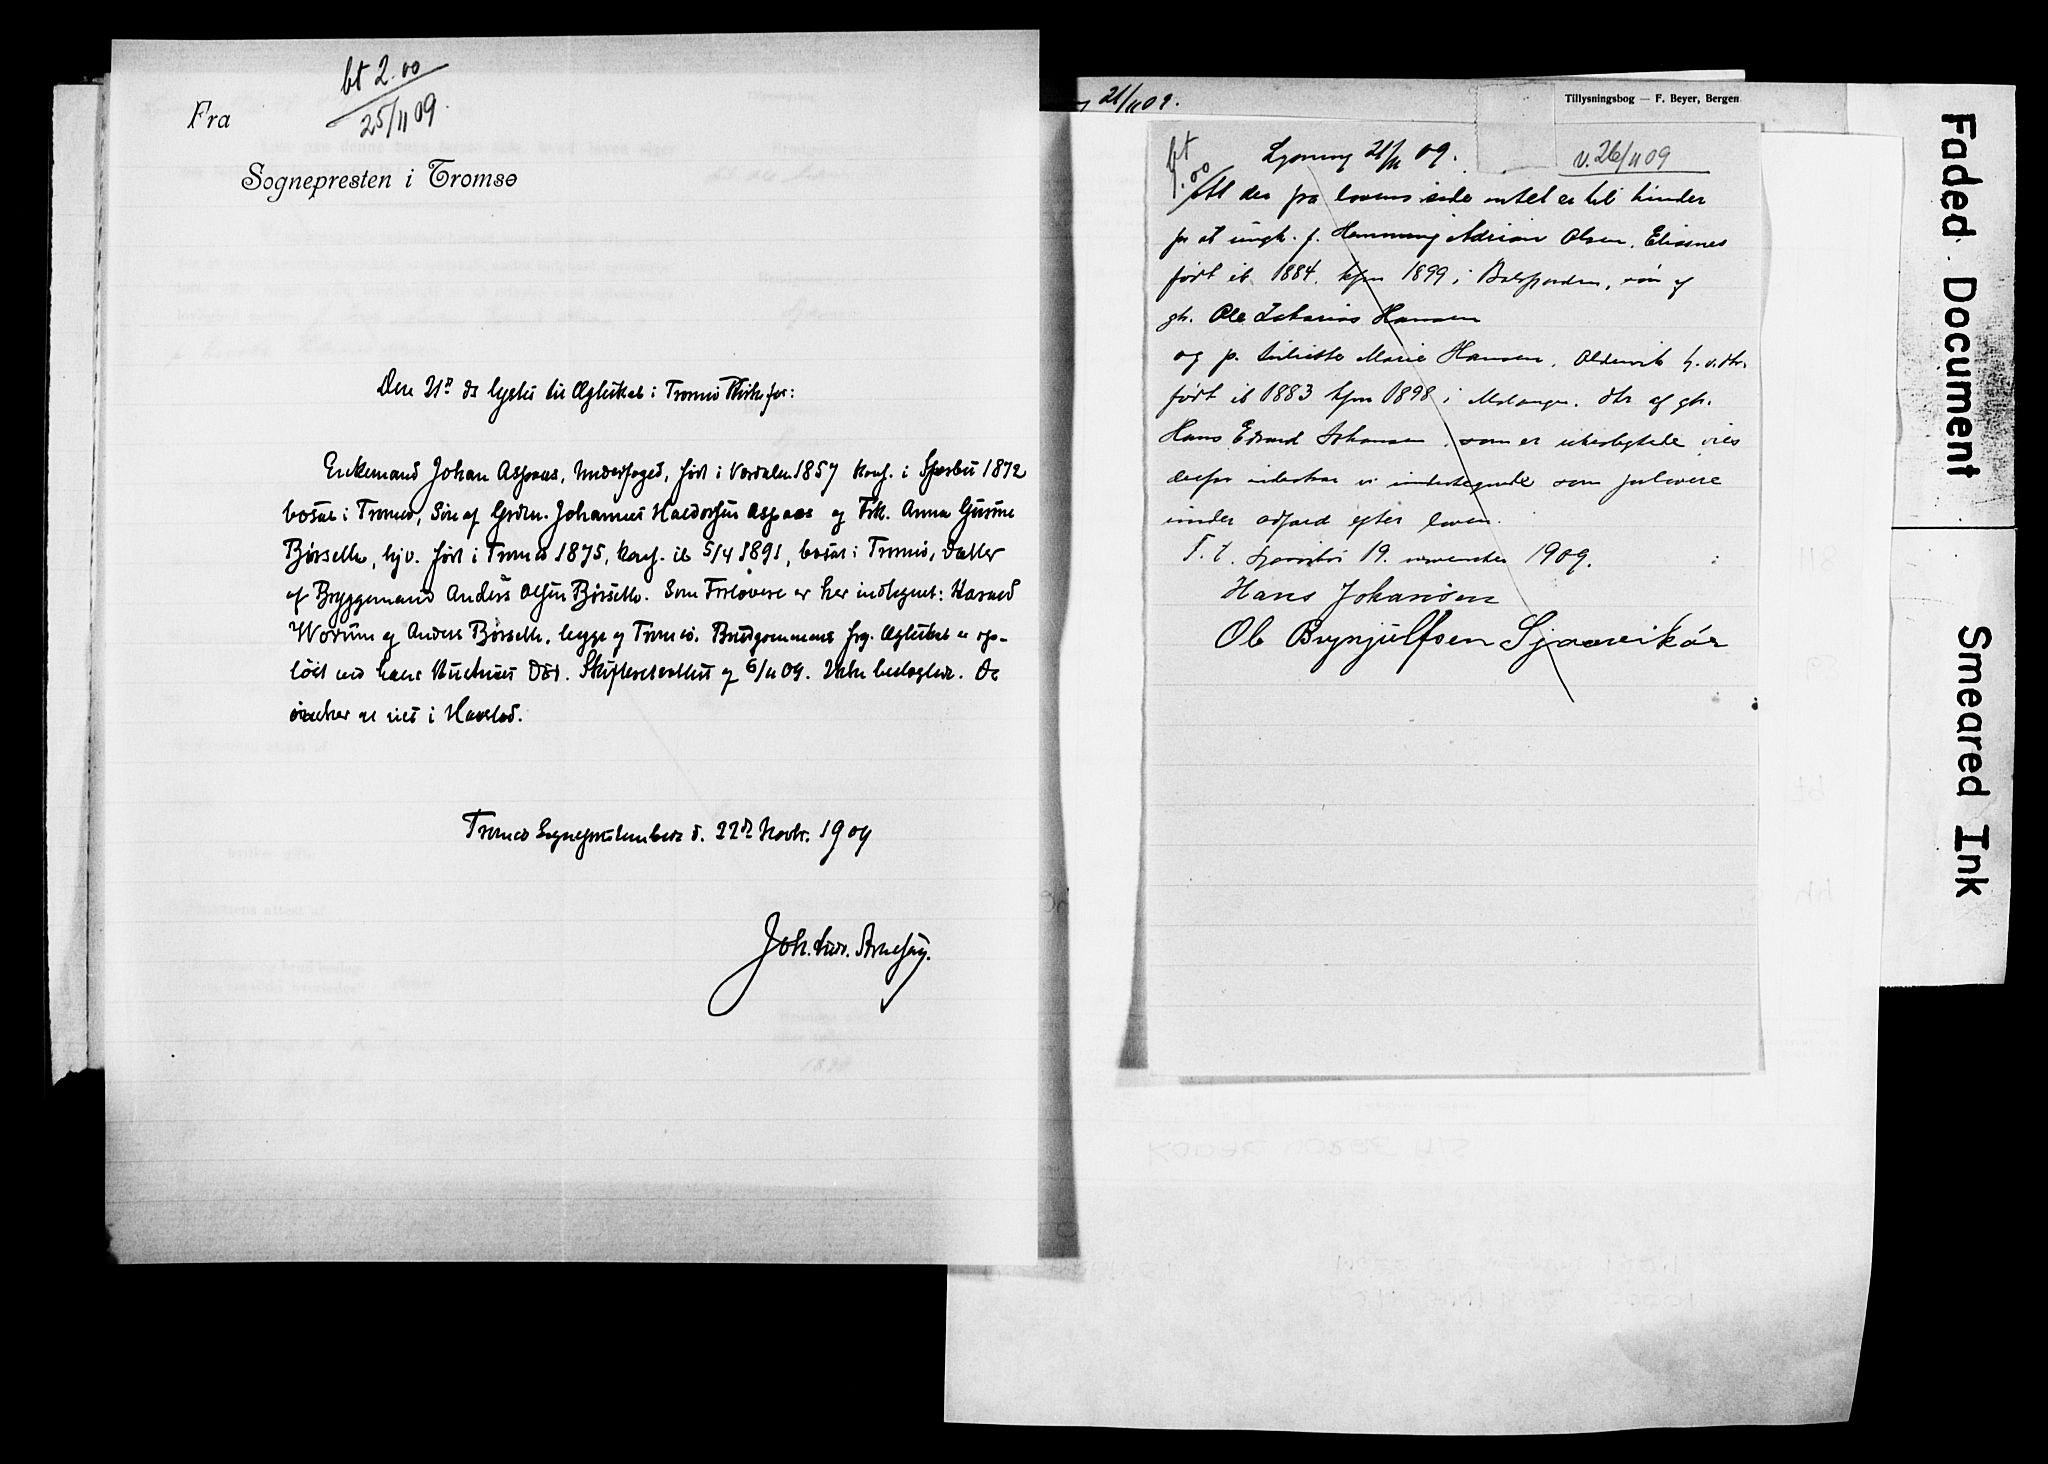 bt 2.00
25/11 09.
Fra
Sognepresten i Tromsø
Den 21de ds lystes til Ægteskab i Tromsø Kirke for:
Enkemand Johan Aspaas, Underfoged, født i Værdalen 1857 konf. i Sparbu 1872
bosat i Tromsø, Søn af Grdm. Johannes Haldorsen Aspaas og Frk. Anna Gurine
Børseth, hjv. født i Tromsø 1875, konf. ib 5/4 1891, bosat i Tromsø, Datter
af Bryggemand Anders Olsen Børseth. Som Forlovere er her indtegnet:
Worum og Anders Børseth, begge af Tromsø. Brudgommens frg. Ægteskab er op-
løst ved hans Hustrues Død. Skifteretsattest af 6/11 09. Ikke beslægtede. De
ønsker at vies i Harstad.
Tromsø Sogneprestembede d. 22de Novbr. 1909
Joh.
21/11 09.
Tillysningsbog — F. Beyer, Bergen
bt
1.00
Lysning 21/11 09.
v. 26/11 09
At der fra lovens side intet er til hinder
for at ungk. f. Hemming Adrian Olsen, Elisnes
født ib 1884, kfm 1899 i Balsfjorden, søn af
gk. Ole Zakarias Hansen
og p. Marie Hansen, Oldervik
født ib 1883 kfm 1898 i Malangen. dtr af gk.
Hans Edvard Johansen, som er ubeslægtede, vies
derfor indestaar vi undertegnede som forlovere
under ansvar efter loven.
T. t. 19. november 1909.
Hans Johansen
Ole Brynjulfsen Sjaaveikør
Faded Document
Smeared Ink